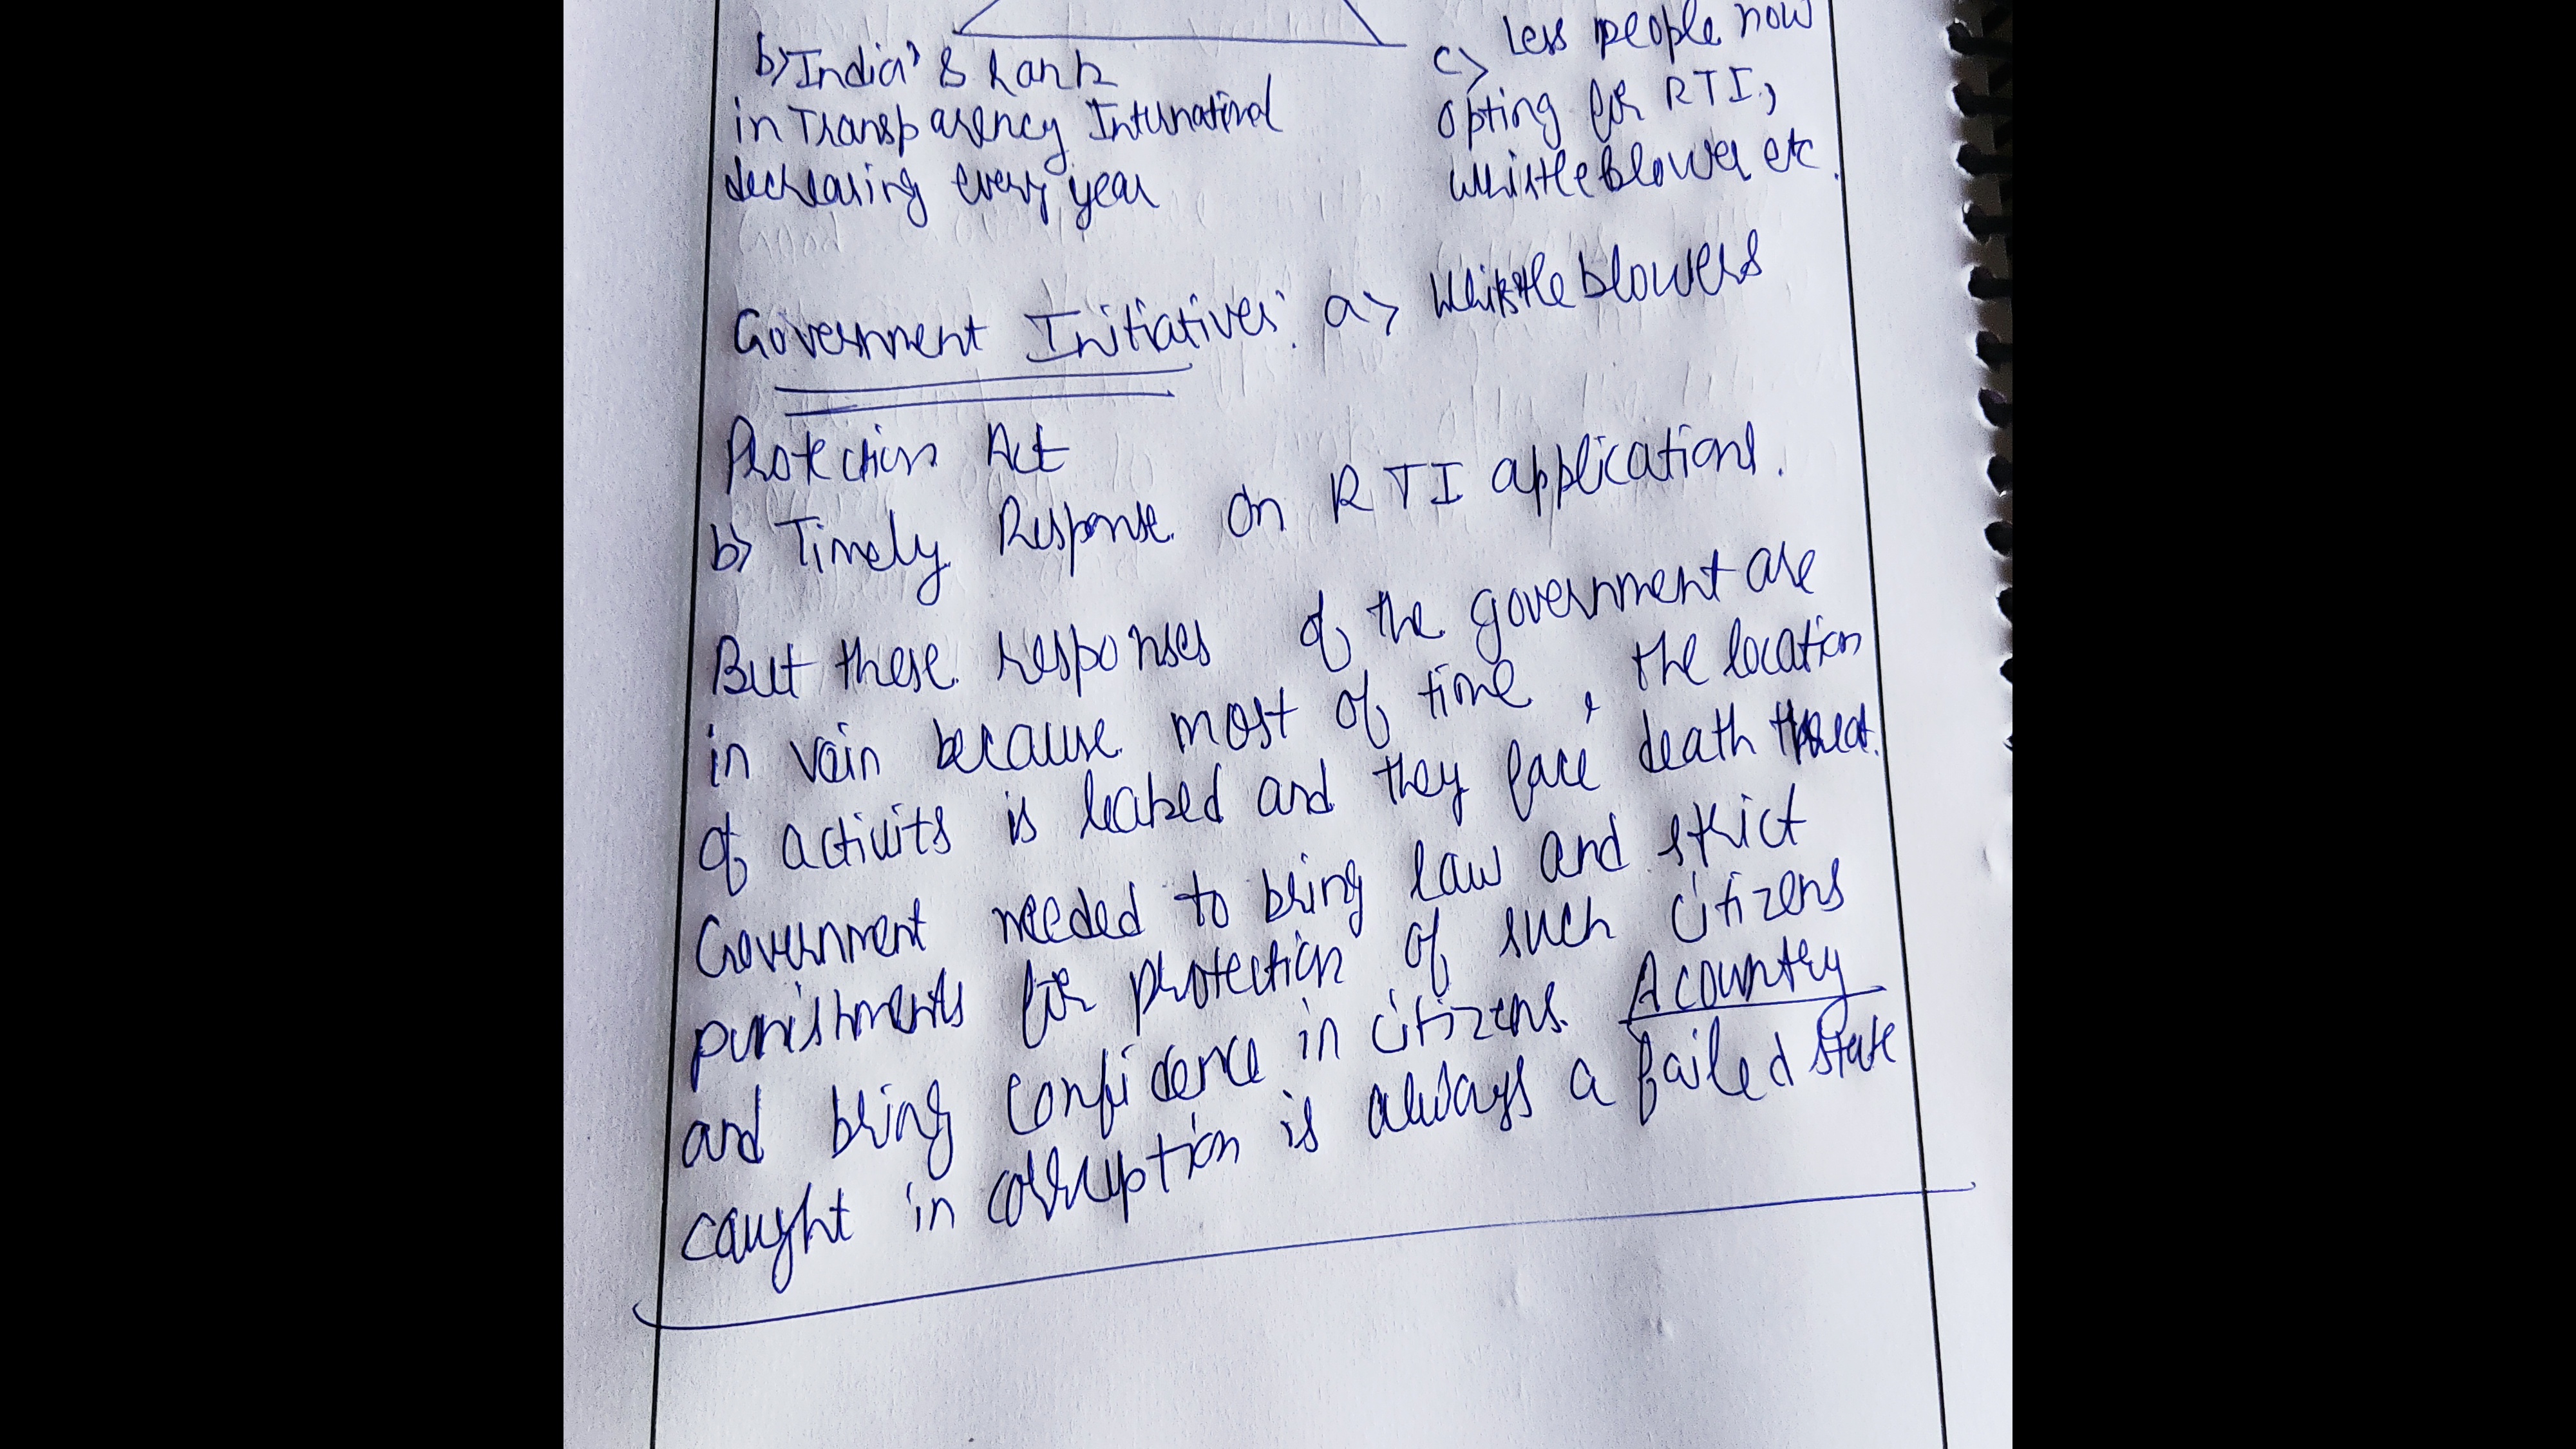 b) India's rank
in Transparency International
decreasing every year
c) Less people now
opting for RTI,
whistleblower etc.
Government Initiatives: a) Whistleblowers
Protection Act
b) Timely Response on RTI applications.
But these responses of the government are
in vain because most of time, the location
of activits is leaked and they face death threat.
Government needed to bring law and strict
punishments for protection of such citizens
and bring confidence in citizens. A country
caught in corruption is always a failed state